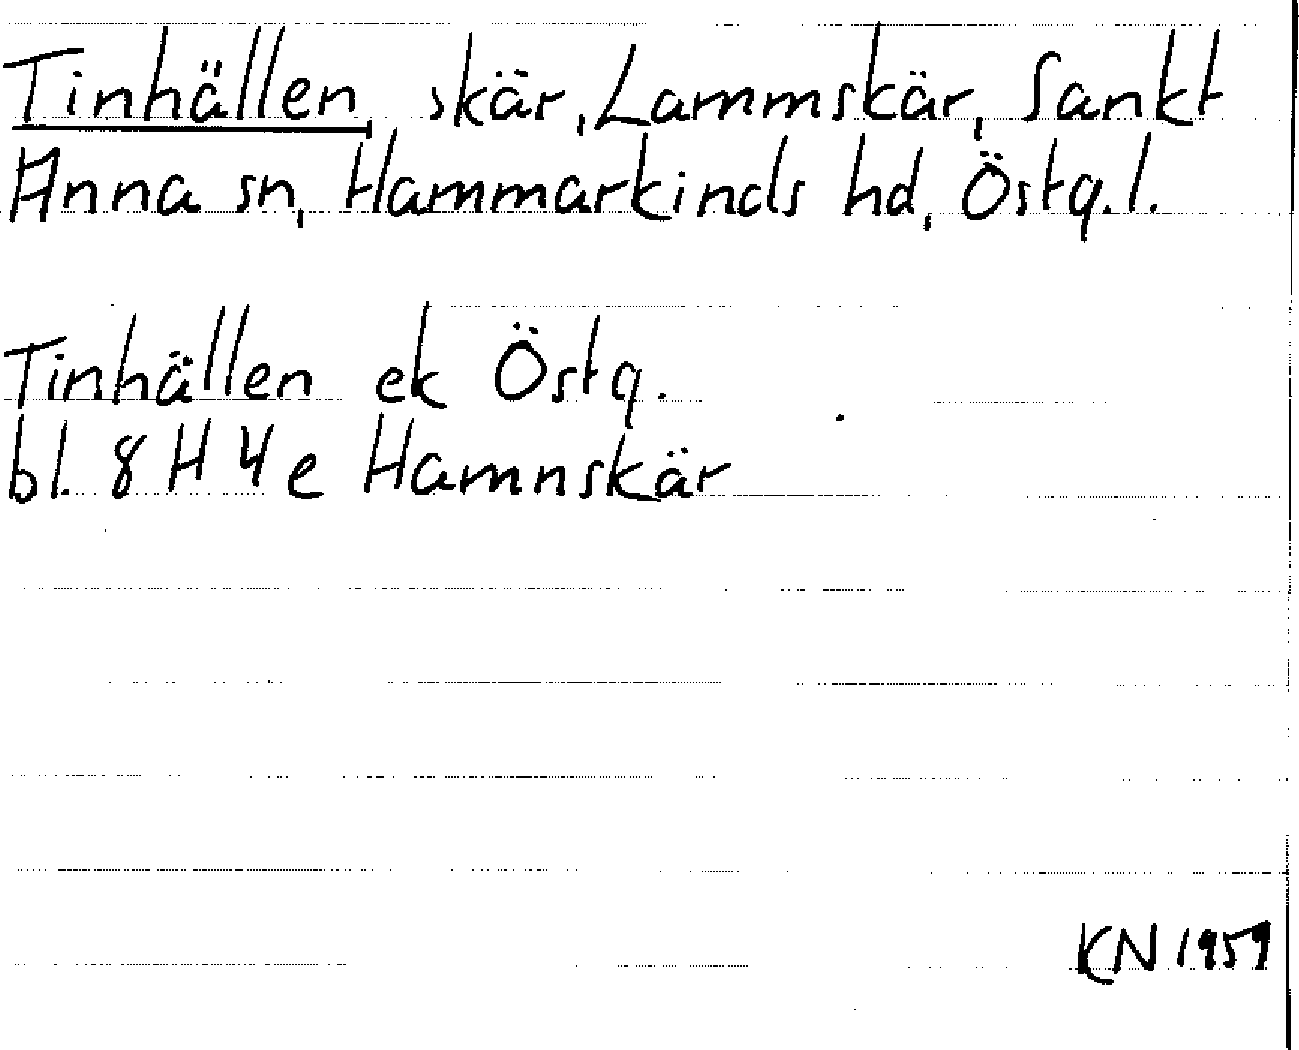 Tinhällen, skär, Lammskär, Sankt
Anna sn, Hammarkinds hd, Östg.l.
Tinhällen ek Östg.
bl. 8 H 4 e Hamnskär
KN 1959